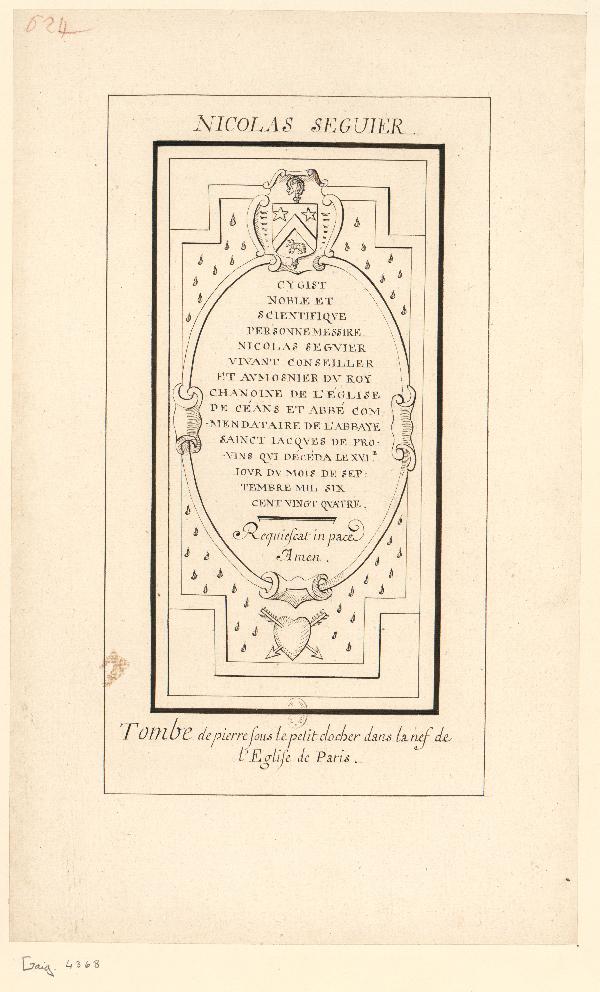 624
NICOLAS SEGUIER
CY GIST
NOBLE ET
SCIENTIFIQVE
PERSONNE MESSIRE
NICOLAS SEGVIER
VIVANT CONSEILLER
ET AVMOSNIER DV ROY
CHANOINE DE L'ÉGLISE
DE CÉANS ET ABBÉ COM-
-MENDATAIRE DE L'ABBAYE
SAINCT IACQVES DE PRO-
-VINS QVI DECÉDA LE XVI.e
IOVR DV MOIS DE SEP-
TEMBRE MIL SIX
CENT VINGT QVATRE.
Requiescat in pace
Amen.
Tombe de pierre sous le petit clocher dans la nef de
l'Eglise de Paris.
Gaig. 4368